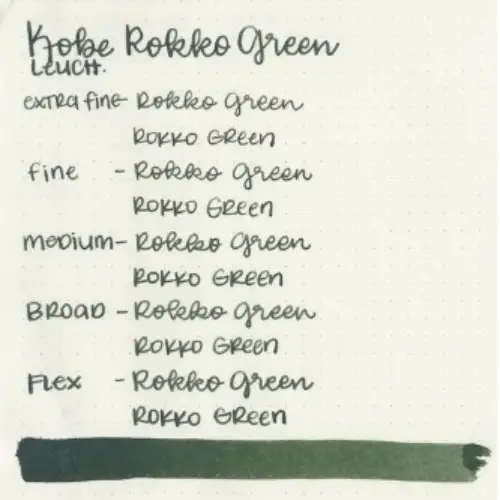 Kobe Rokko Green
LEUCHT.
extra fine - Rokko Green
ROKKO GREEN
fine - Rokko Green
ROKKO GREEN
medium - Rokko Green
ROKKO GREEN
BROAD - Rokko Green
ROKKO GREEN
FLEX - Rokko Green
ROKKO GREEN